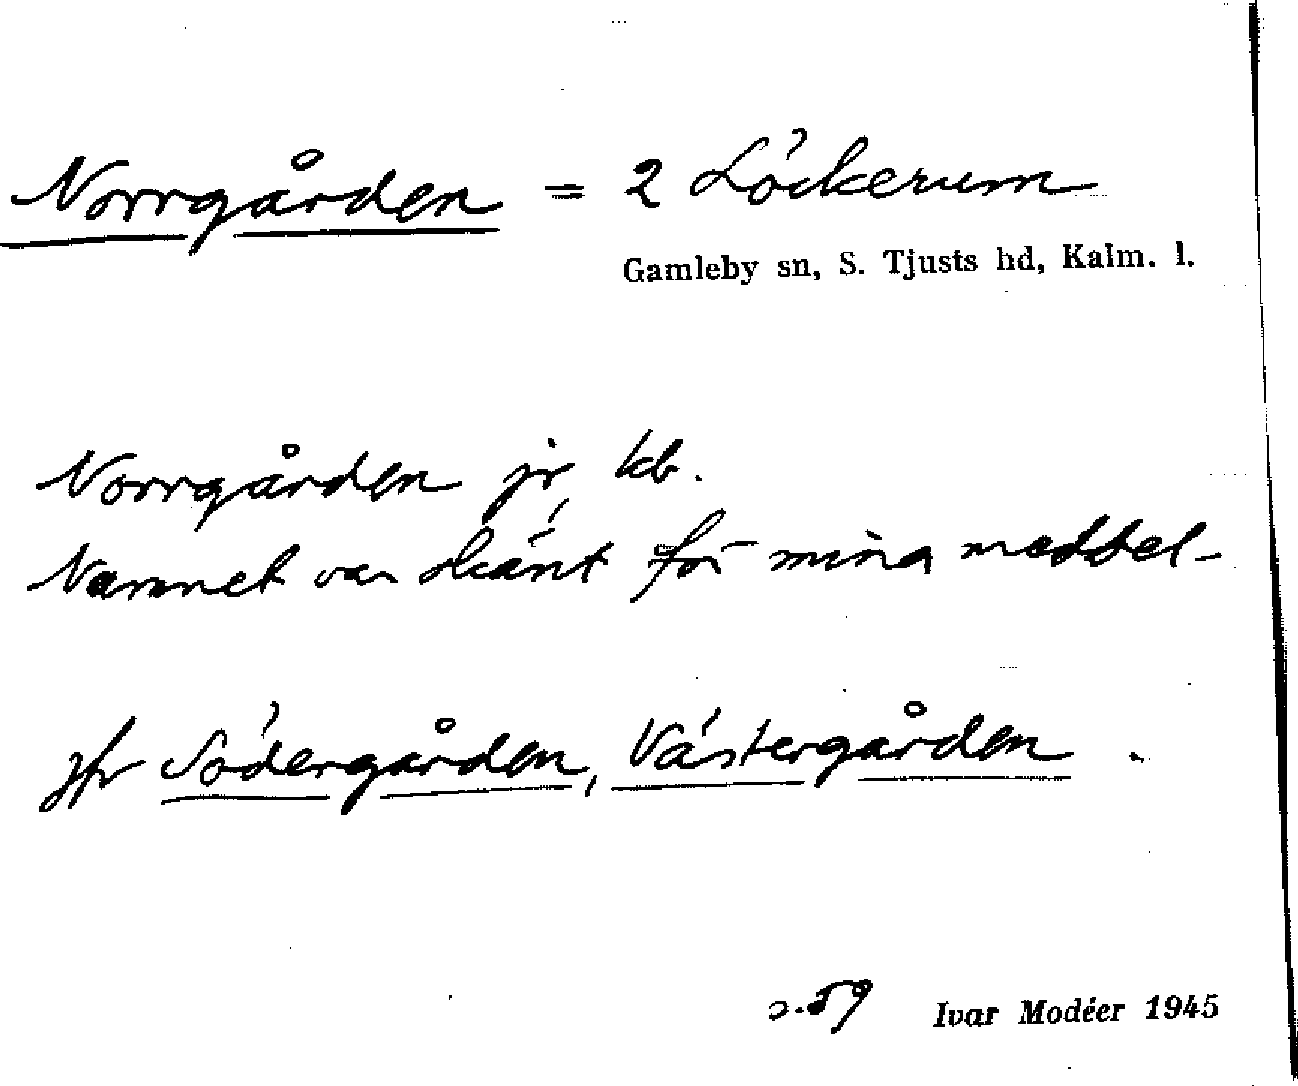 Norrgården = 2 Löckerum
Gamleby sn, S. Tjusts hd, Kalm. l.
Norrgården jr, kb.
Namnet var okänt för mina meddel-
jfr Södergården, Västergården .
s. 59 Ivar Modéer 1945